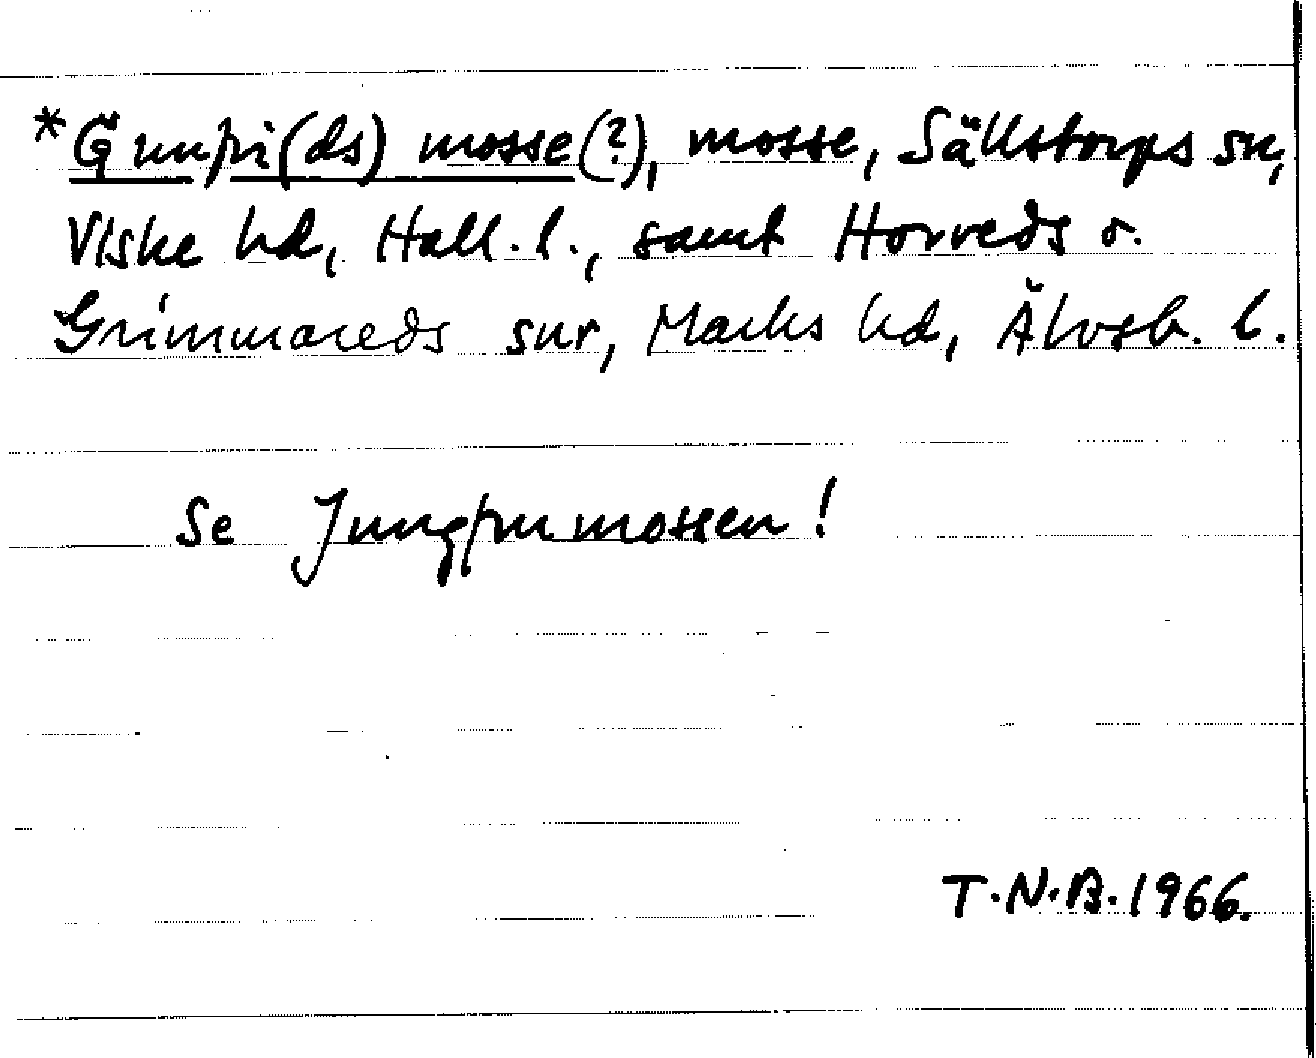 *Gunfri(ds) mosse(?), mosse, Sällstorps sn,
Viske hd, Hall. l., samt Horreds o.
Grimmareds snr, Marks hd, Älvsb. l.
Se Jungfrumossen!
T.N.B. 1966.